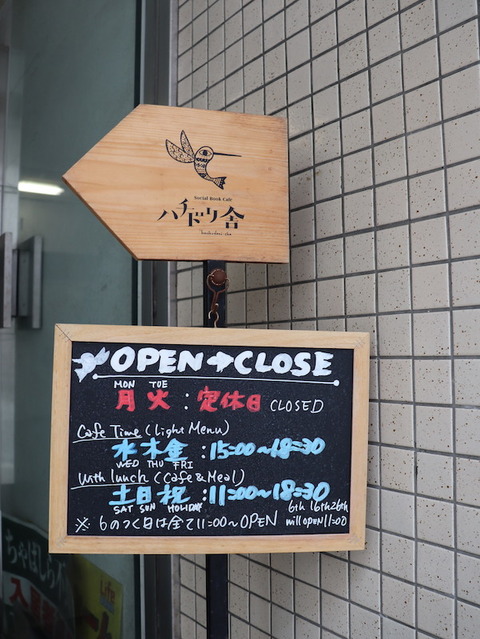 Social Book Cafe
ハチドリ舎
hachidori-sha
OPEN→CLOSE
MON TUE
月 火 : 定休日 CLOSED
Cafe Time (Light Menu)
水 木 金 : 15:00~18:30
WED THU FRI
With lunch (Cafe & Meal)
土 日 祝 : 11:00~18:30
SAT SUN HOLIDAY
6th 16th 26th
※ 6のつく日は全て11:00~OPEN will open 11:00